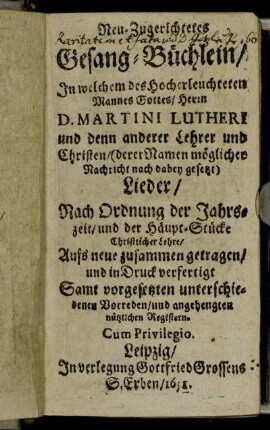 Neu-Zugerichtetes
Gesang-Büchlein/
In welchem des Hocherleuchteten
Mannes Gottes/ Herrn
D. MARTINI LUTHERI
und denn anderer Lehrer und
Christen/(derer Namen möglicher
Nachricht nach dabey gesetzt)
Lieder/
Nach Ordnung der Jahrs-
zeit/ und der Häupt-Stücke
Christlicher Lehre/
Auffs neue zusammen getragen/
und in Druck verfertigt
Samt vorgesetzten unterschie-
denen Vorreden/ und angehengten
nützlichen Registern.
Cum Privilegio.
Leipzig/
In verlegung Gottfried Grossens
S. Erben/